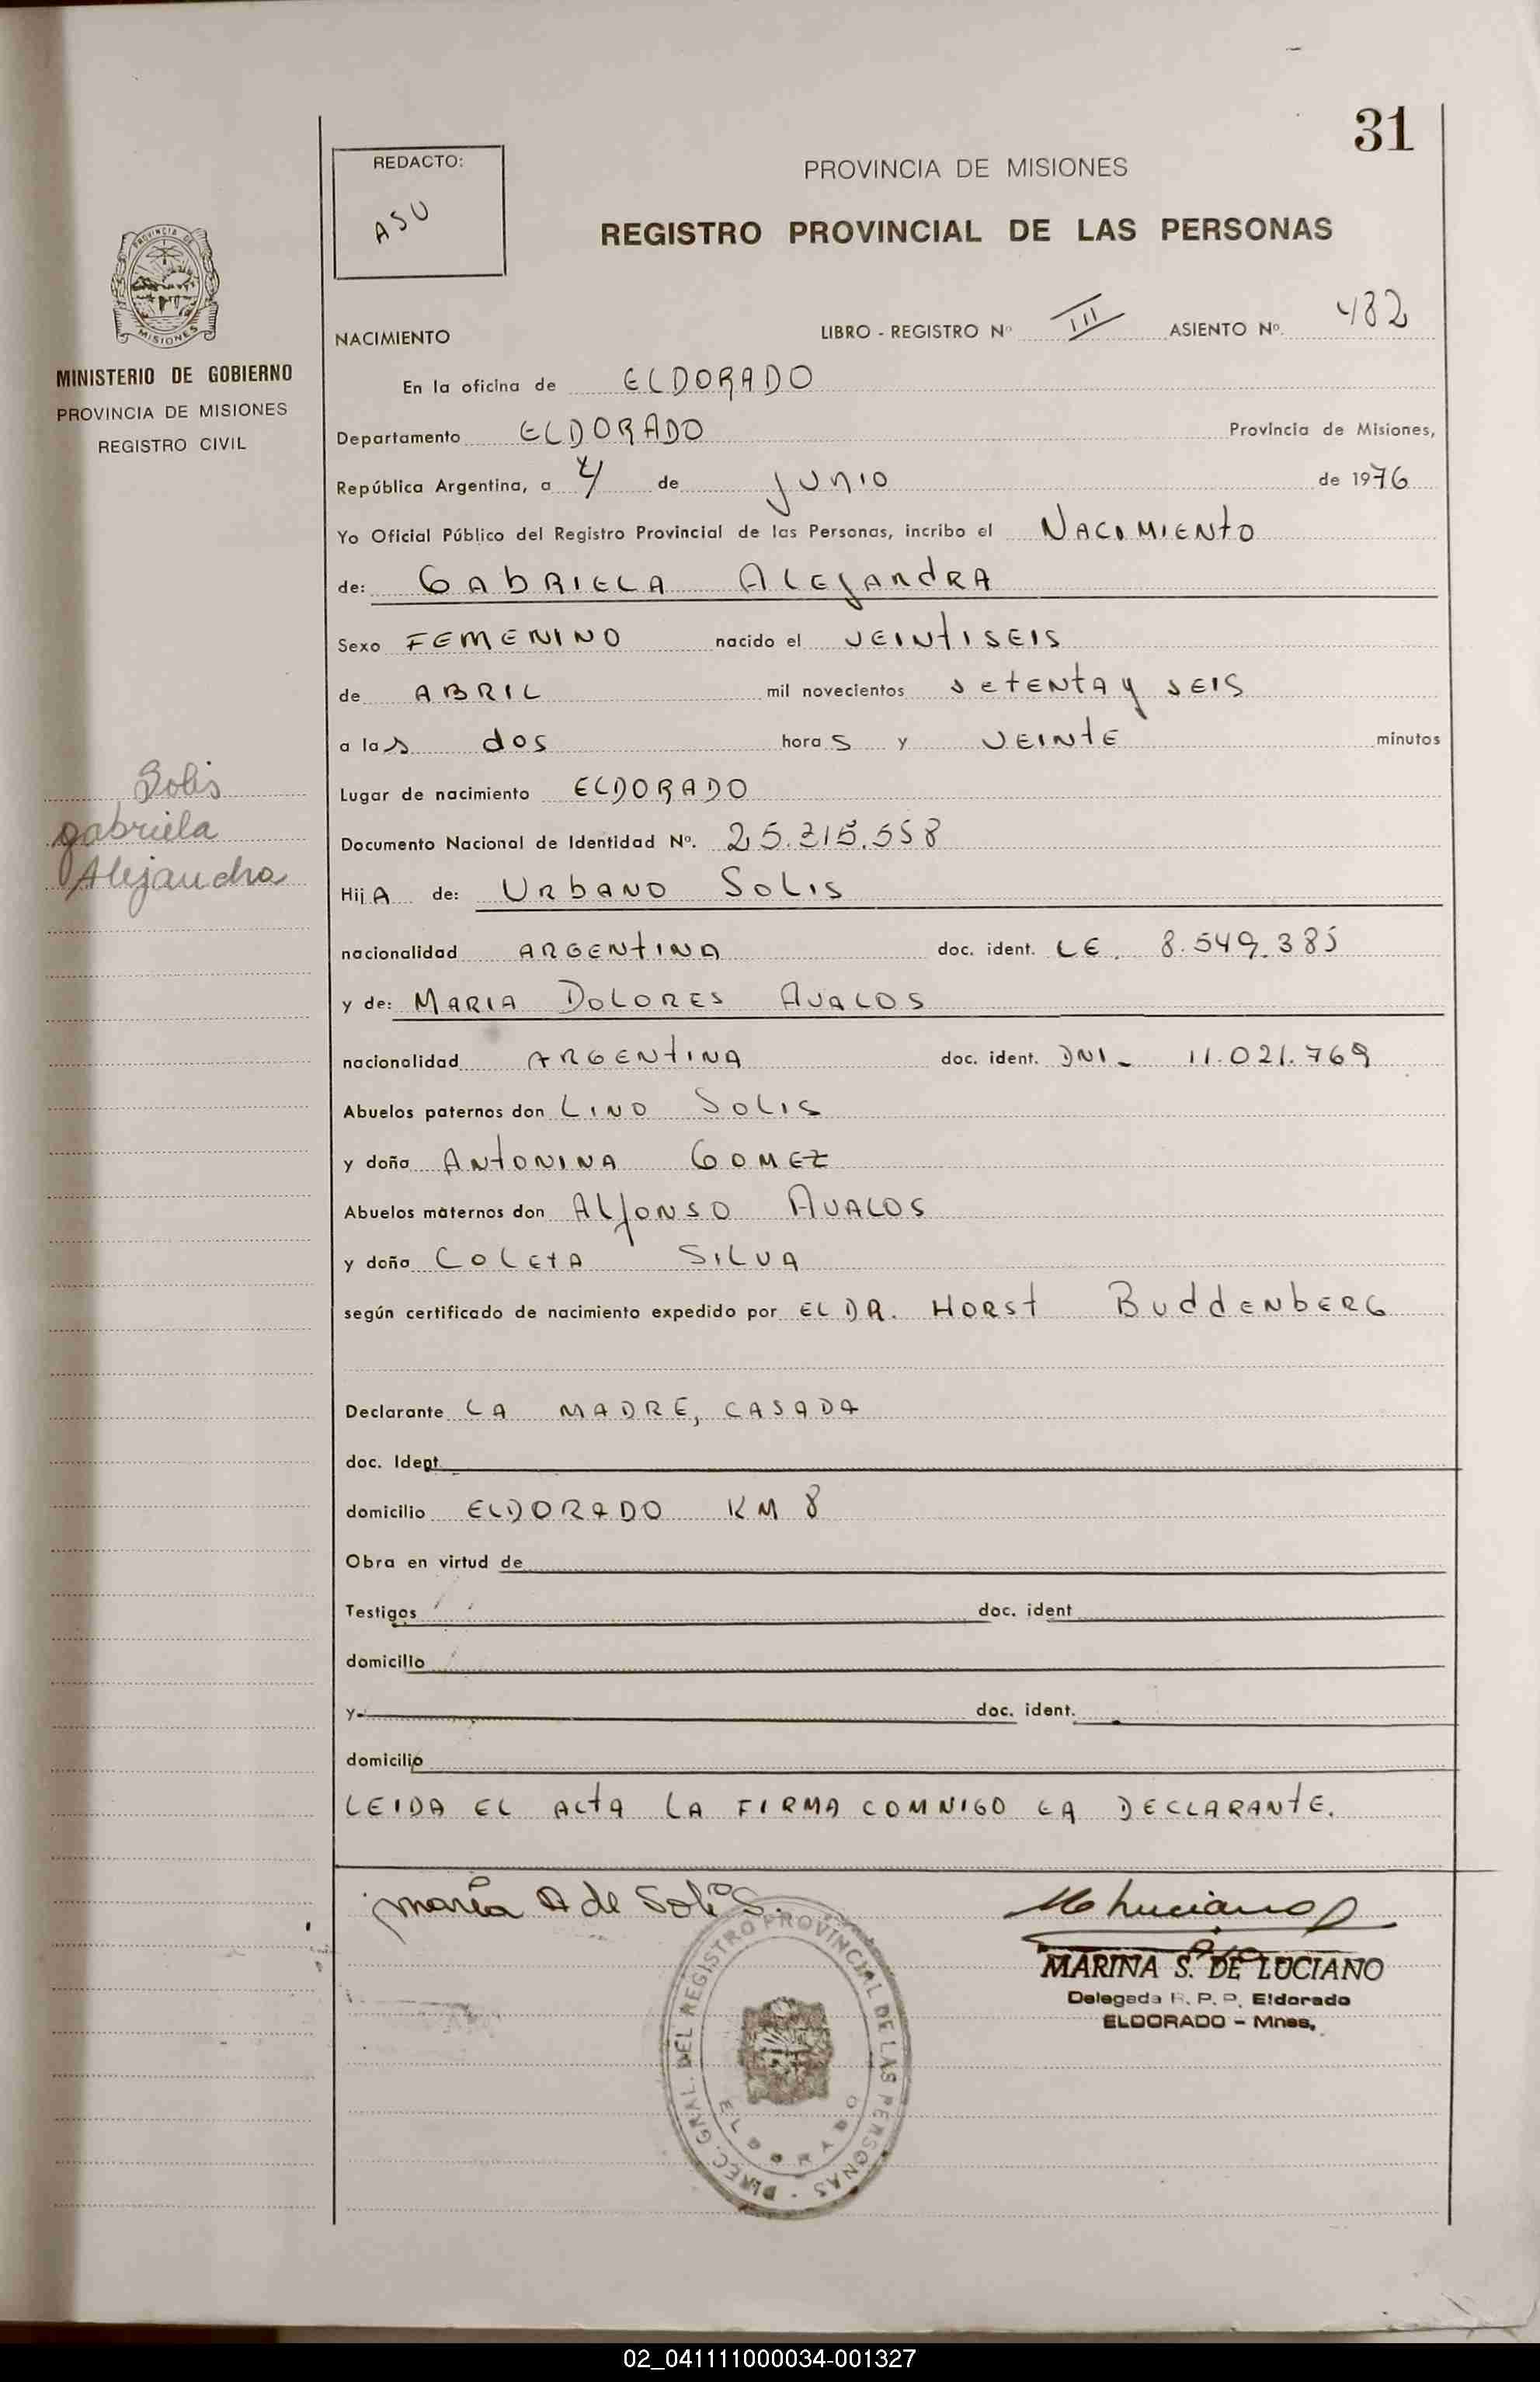 31
REDACTO:
ASU
PROVINCIA DE MISIONES
REGISTRO PROVINCIAL DE LAS PERSONAS
PROVINCIA DE
MISIONES
MINISTERIO DE GOBIERNO
PROVINCIA DE MISIONES
REGISTRO CIVIL
NACIMIENTO LIBRO - REGISTRO Nº III ASIENTO Nº 482
En la oficina de ELDORADO
Departamento ELDORADO Provincia de Misiones,
República Argentina, a 4 de junio de 1976
Yo Oficial Público del Registro Provincial de las Personas, incribo el NACIMIENTO
de: GABRIELA ALEJANDRA
Sexo FEMENINO nacido el VEINTISEIS
de ABRIL mil novecientos SETENTA y SEIS
a las dos horas y VEINTE minutos
Solis
gabriela
Alejandra
Lugar de nacimiento ELDORADO
Documento Nacional de Identidad Nº. 25.315.558
HijA de: URBANO SOLIS
nacionalidad ARGENTINA doc. ident. LE. 8.549.385
y de: MARIA DOLORES AVALOS
nacionalidad ARGENTINA doc. ident. DNI- 11.021.769
Abuelos paternos don LINO SOLIS
y doña ANTONINA GOMEZ
Abuelos maternos don ALFONSO AVALOS
y doña COLETA SILVA
según certificado de nacimiento expedido por EL DR. HORST BUDDENBERG
Declarante LA MADRE, CASADA
doc. Ident
domicilio ELDORADO KM 8
Obra en virtud de
Testigos doc. ident
domicilio
y doc. ident.
domicilio
LEIDA EL ACTA LA FIRMA COMNIGO LA DECLARANTE.
maria A de Solis.
MARINA S. DE LUCIANO
Delegada R. P. P. Eldorado
ELDORADO - Mnes.
DIREC. GRAL. DEL REGISTRO PROVINCIAL DE LAS PERSONAS
ELDORADO
02_041111000034-001327